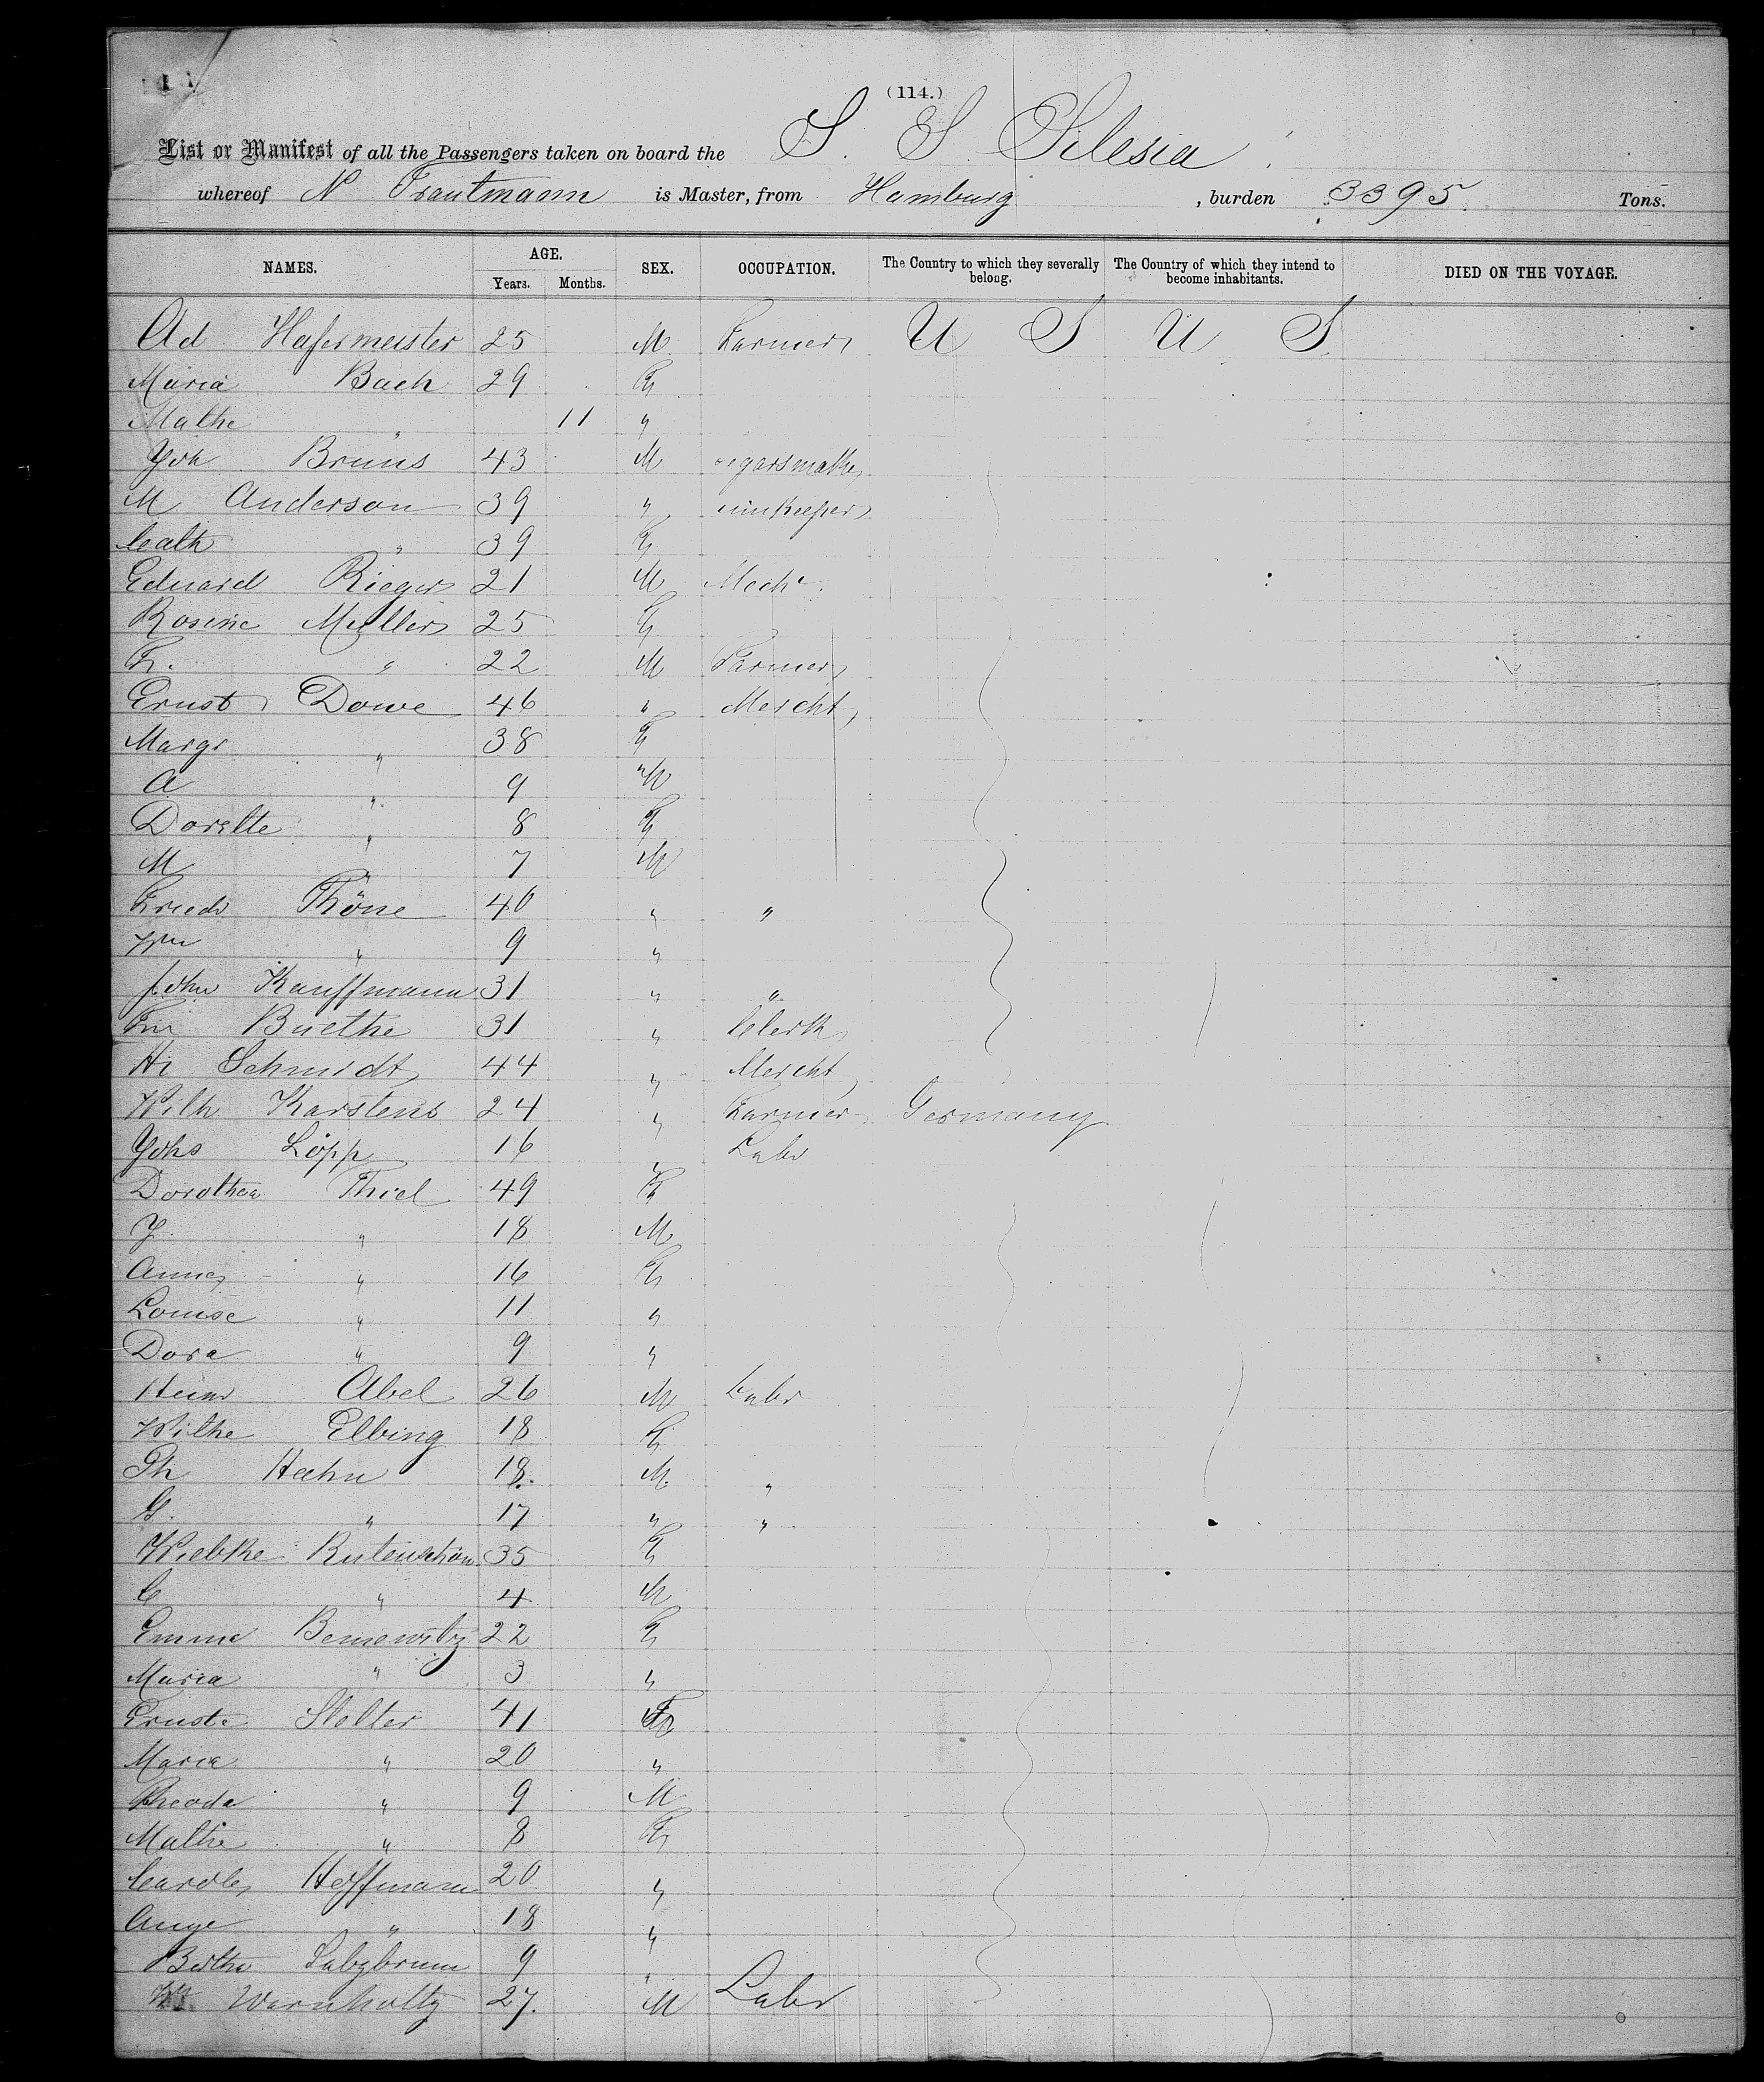 (114.)
List or Manifest of all the Passengers taken on board the S. S Silesia
whereof N Trautmann is Master, from Hamburg, burden 3395. Tons.
NAMES. AGE. SEX. OCCUPATION. The Country to which they severally belong. The Country of which they intend to become inhabitants. DIED ON THE VOYAGE.
Years. Months.
Ad Hafermeister 25 M Farmer U S U S
Maria Bach 29 F
Mathe " 11 "
Joh Bruns 43 M cigarsmaker
M Anderson 39 " innkeeper
Cath " 39 F
Eduard Rieger 21 M Mech.
Rosine Muller 25 F
F. " 22 M Farmer
Ernst Dowe 46 " Mercht
Margr " 38 F
A " 9 M
Dorette " 8 F
M " 7 M
Friedr Thöne 40 " "
Wm " 9 "
John Kauffmann 31 " "
Fr Buethe 31 " Clerk
Hr Schmidt 44 " Mercht
Wilh Karstens 24 " Farmer Germany
Johs Löpp 16 " Labr
Dorothea Thiel 49 F
J. " 18 M
Anna " 16 F
Louise " 11 "
Dora " 9 "
Heinr Abel 26 M Labr
Wilhe Elbing 18 F
Th Hahn 18. M. "
G. " 17 " "
Wiebke Rutenschön 35 F
C " 4 M
Emma 22 F
Maria " 3 "
Ernste Stolter 41 F
Maria " 20 "
Theoda " 9 M
Mathe " 8 F
Carole Hoffmann 20 "
Auge " 18 "
Bertha Salzbrunn 9 "
Warnholtz 27. M Labr